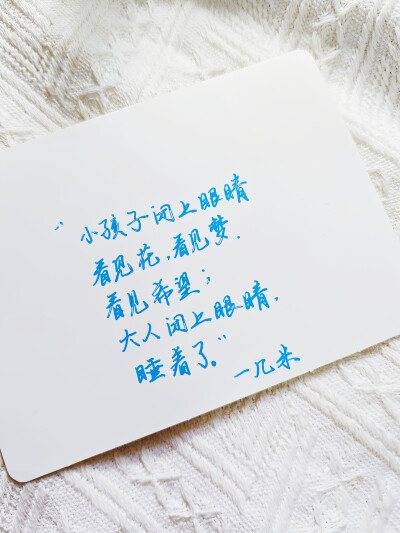 “小孩子闭上眼睛
看见花，看见梦.
看见希望；
大人闭上眼睛，
睡着了。”
—几米